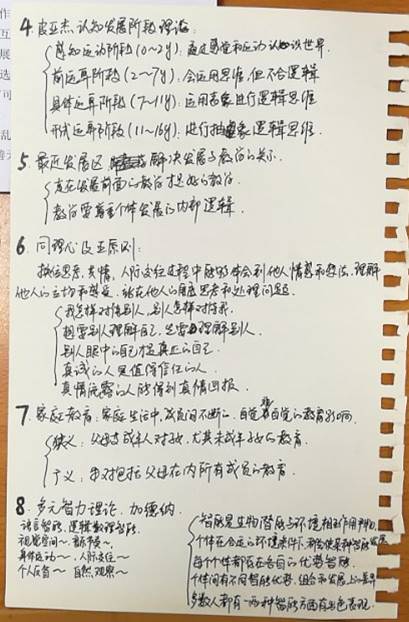 作
互
展
选
可
乱
4 皮亚杰认知发展阶段理论：
感知运动阶段(0~2y)：通过感觉和运动认识世界.
前运算阶段(2~7y)：会运用思维，但不合逻辑
具体运算阶段(7~11y)：运用表象进行逻辑思维
形式运算阶段(11~16y)：进行抽象逻辑思维.
5 最近发展区 解决发展与教育的关系.
走在发展前面的教育才是好的教育.
教育需尊重个体发展的内部逻辑.
6. 同理心及其原则：
换位思考、共情，人际交往过程中能够体会到他人情意和想法、理解
他人的立场和感受，站在他人的角度思考和处理问题
我怎样对待别人，别人怎样对待我
想要别人理解自己，先要理解别人.
别人眼中的自己才是真正的自己.
真诚的人是值得信任的人
真情流露的人能得到真情回报.
7. 家庭教育：家庭生活中，成员间不断的、自觉或非自觉的教育影响.
狭义：父母或成年人对子女，尤其未成年子女的教育.
广义：包括父母在内所有成员的教育.
8 多元智力理论. 加德纳.
语言智能. 逻辑数理智能. 智能是生物潜能与环境相互作用
视觉空间~ 音乐~ 个体在合适的环境条件下都能使某种智能发展
身体运动~ 人际交往~ 每个个体都存在各自的优势智能.
个人反省~ 自然观察~ 个体间有不同智能优势，组合和发展上有差异
多数人都有一两种智能方面有出色表现.